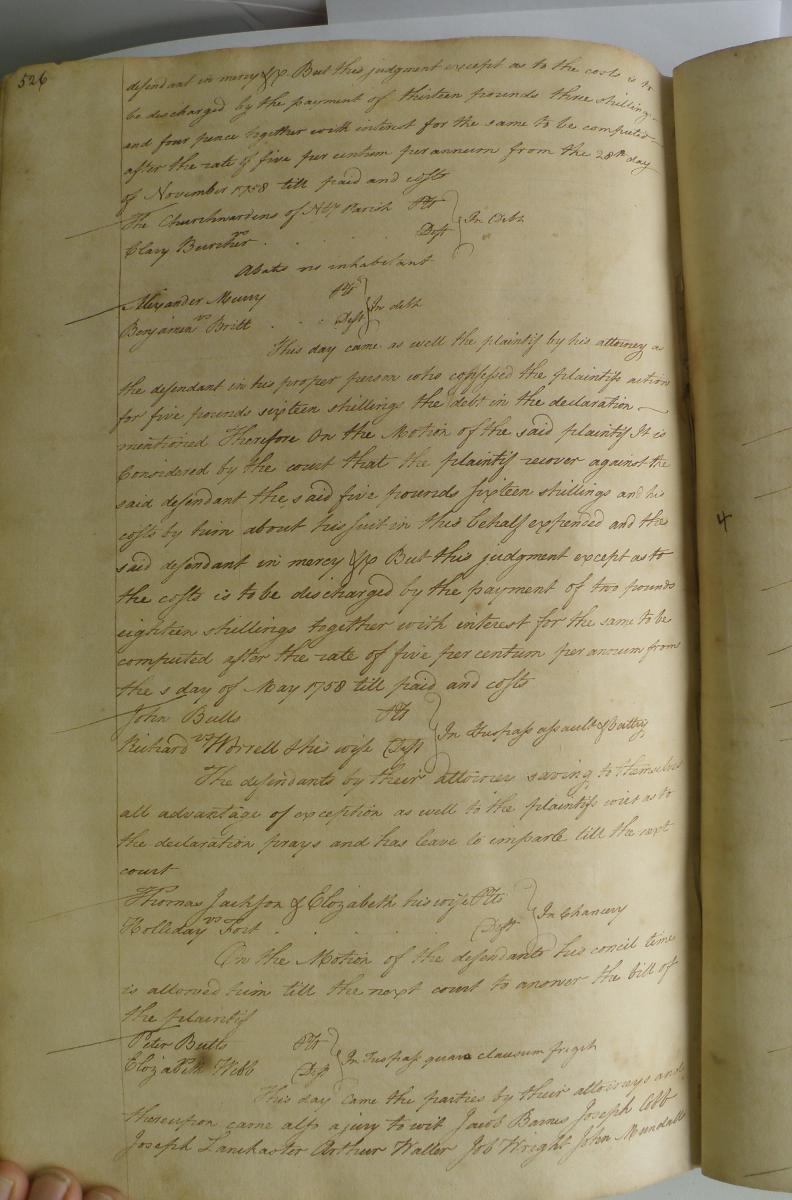 526
defendant in mercy &c. But this judgment except as to the costs is to
be discharged by the payment of thirteen pounds three shillings
and four pence together with interest for the same to be computed
after the rate of five per centum per annum from the 28th day
of November 1758 till paid and costs
The Churchwardens of Parish Plts
vs In Debt
Clary Burcher Deft
Abates no inhabitant
Alexander Murry Plt
vs In debt
Benjamin Britt Deft
This day came as well the plaintif by his attorney a
the defendant in his proper person who confessed the plaintifs action
for five pounds sixteen shillings the debt in the declaration
mentioned Therefore On the Motion of the said plaintif It is
Considered by the court that the plaintif recover against the
said defendant the said five pounds sixteen shillings and his
costs by him about his suit in this behalf expended and the
said defendant in mercy &c But this judgment except as to
the costs is to be discharged by the payment of two pounds
eighteen shillings together with interest for the same to be
computed after the rate of five per centum per annum from
the day of May 1758 till paid and costs
John Butts Plt
vs In trespass assault & Battery
Richard Worrell & his wife Deft
The defendants by their attorney saving to themselves
all advantage of exception as well to the plaintifs writ as to
the declaration prays and has leave to imparle till the next
court
Thomas Jackson & Elizabeth his wife Plts
vs In Chancery
Holliday Fort Deft
On the Motion of the defendants his concil time
is allowed him till the next court to answer the bill of
the plaintif
Peter Butts Plt
In Trespass quare clausum frigit
Elizabeth Webb Deft
This day came the parties by their attorneys and
thereupon came also a jury to wit Jacob Barnes Joseph Cobb
Joseph Lanckaster Arthur Waller Job Wright John Mundall
4